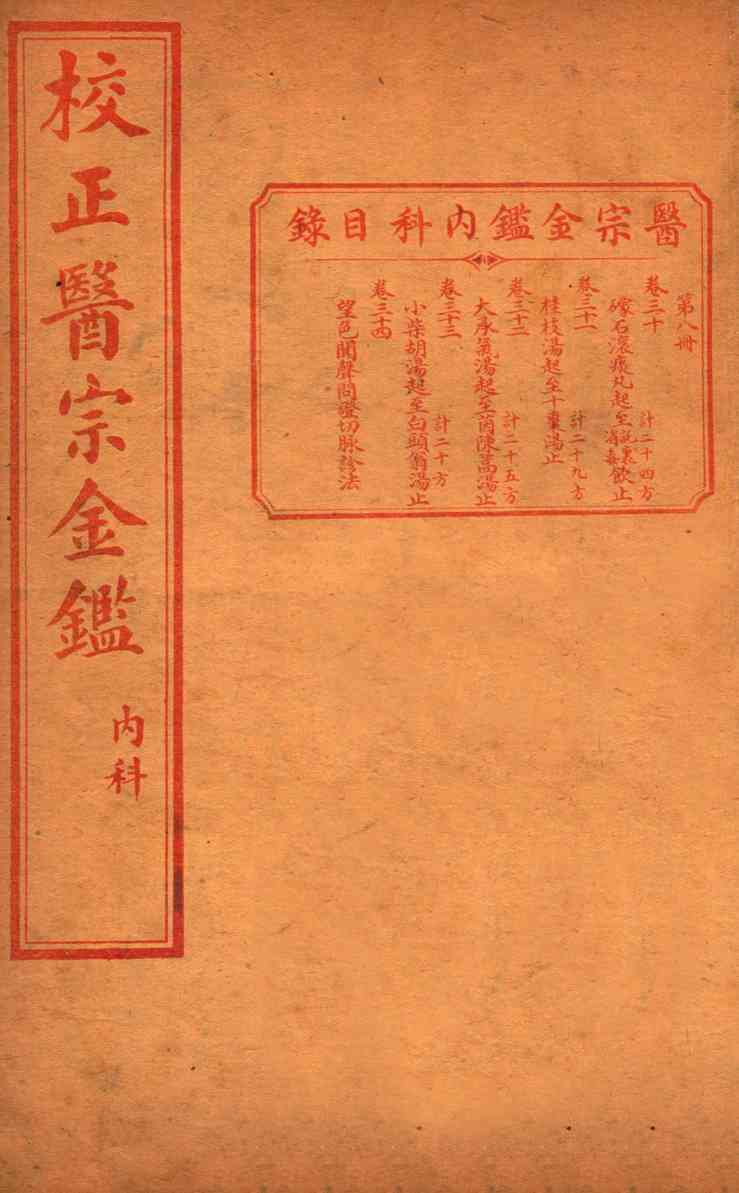 校正醫宗金鑑
內科
醫宗金鑑內科目錄
第八冊
卷三十 計二十四方
礞石滾痰丸起至託裏消毒飲止
卷三十一 計二十九方
桂枝湯起至十棗湯止
卷三十二 計二十五方
大承氣湯起至茵陳蒿湯止
卷三十三 計二十方
小柴胡湯起至白頭翁湯止
卷三十四
望色聞聲問證切脉診法